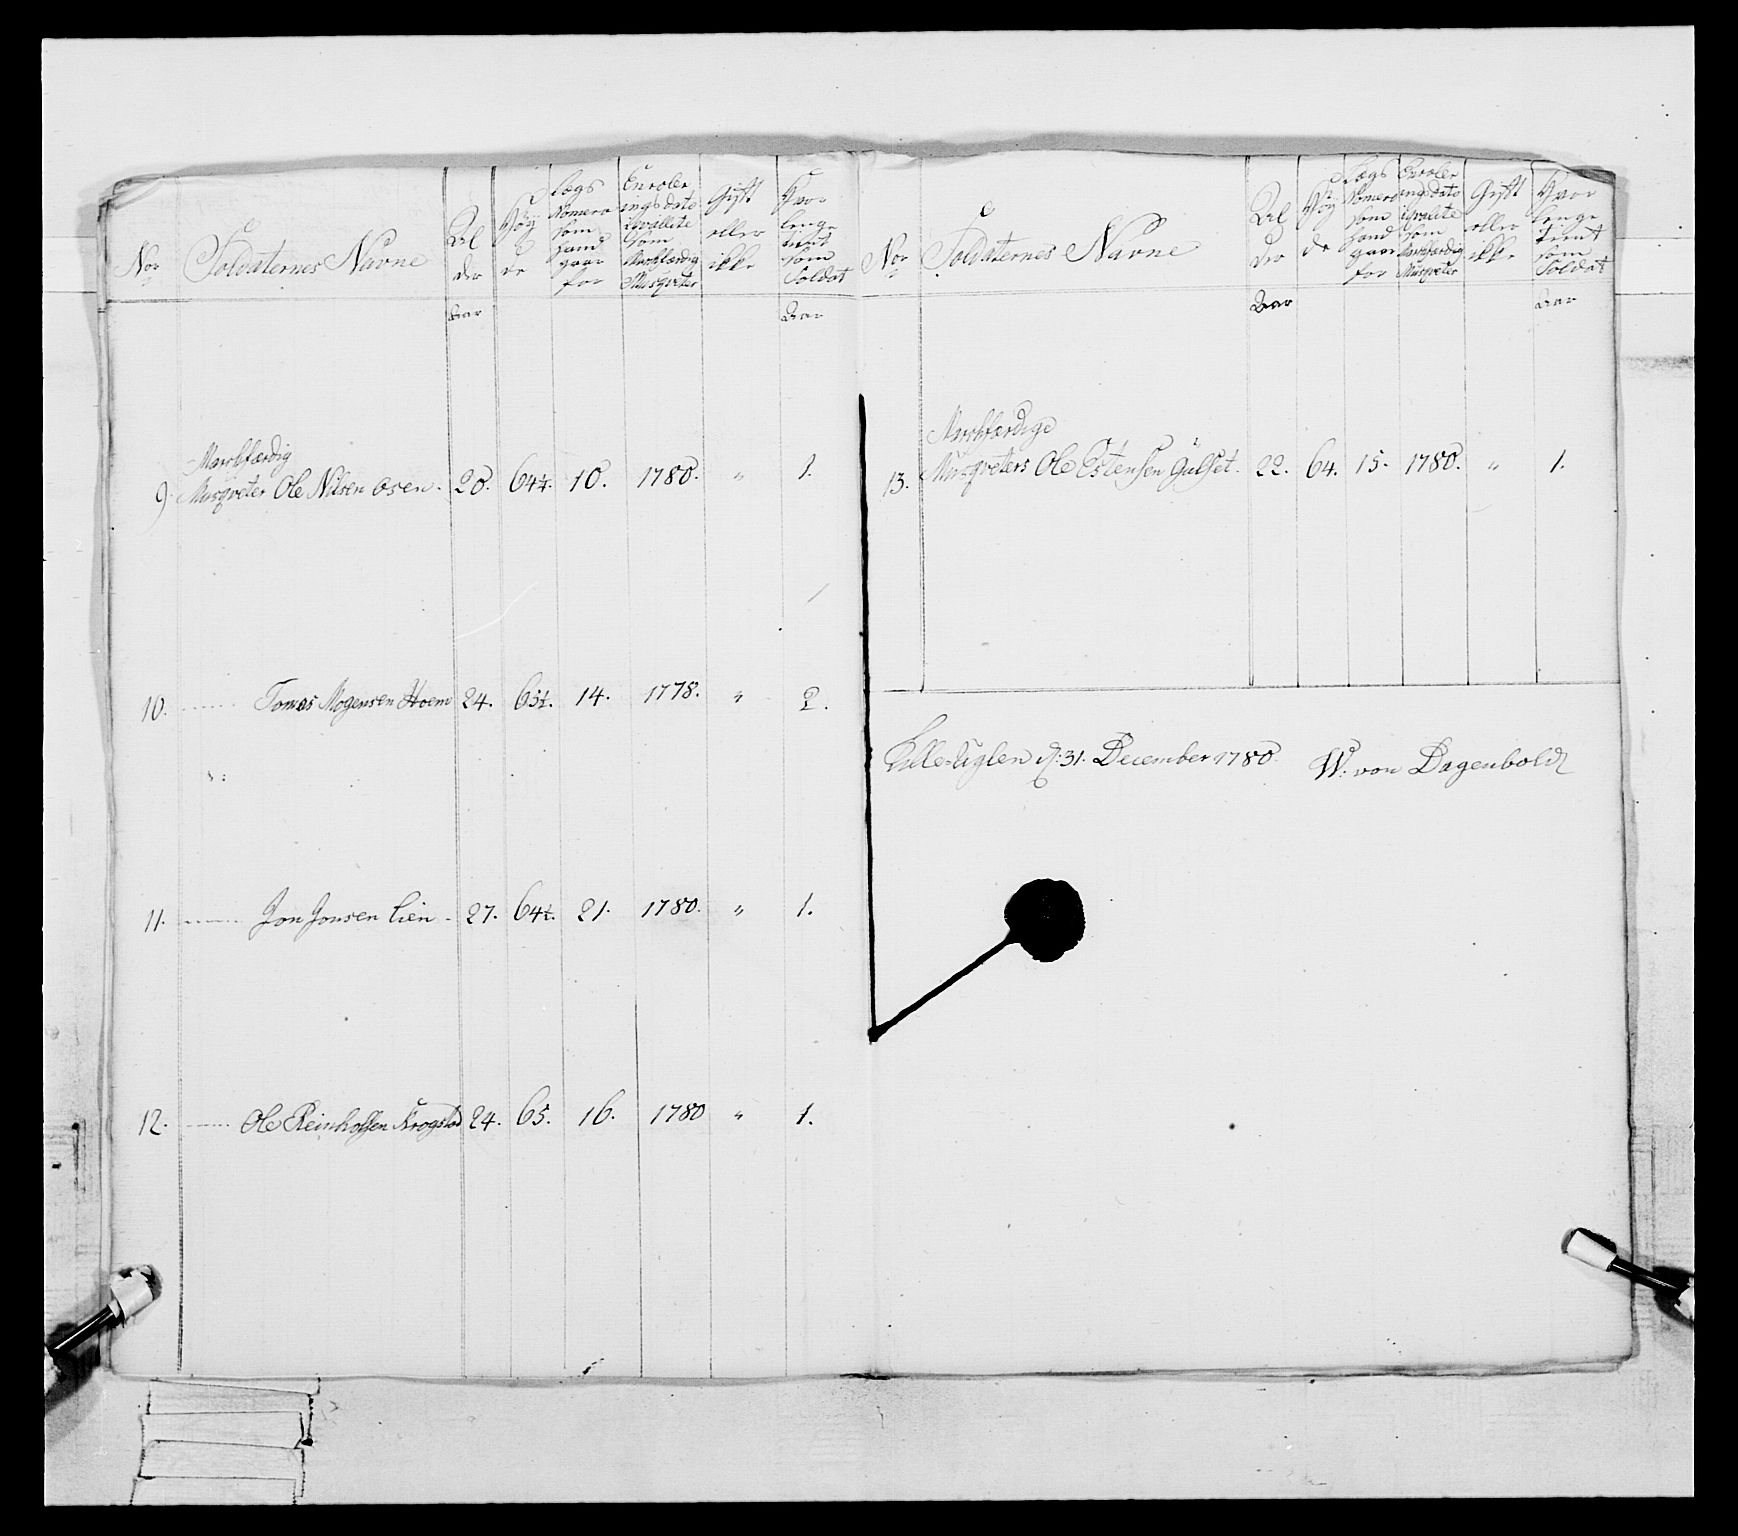 No Soldaternes Navne Al der Høy de Lægs Nomero som hand gaar for Enroler ings dato som Marchfærdig Musqveter Gift eller ikke Hvor lenge tient som Soldat
Aar Aar
Marchfærdig
9. Musqveter Ole Nilsen Osen. 20. 64½. 10. 1780. " 1.
10. Tomas Mogensen Hoem 24. 65½. 14. 1778. " 2.
11. Jon Jonsen Lien 27. 64½. 21. 1780. " 1.
12. Ole Reinholtsen Krogstad 24. 65. 16. 1780 " 1.
No Soldaternes Navne Al der Høy de Lægs Nomero som hand gaar for Enroler ings dato som Marchfærdig Musqveter Gift eller ikke Hvor lenge tient som Soldat
Aar Aar
Marchfærdige
13. Musqveters Ole Estensen Gulset. 22. 64. 15. 1780. " 1.
d: 31. December 1780. W. von Dagenboldt